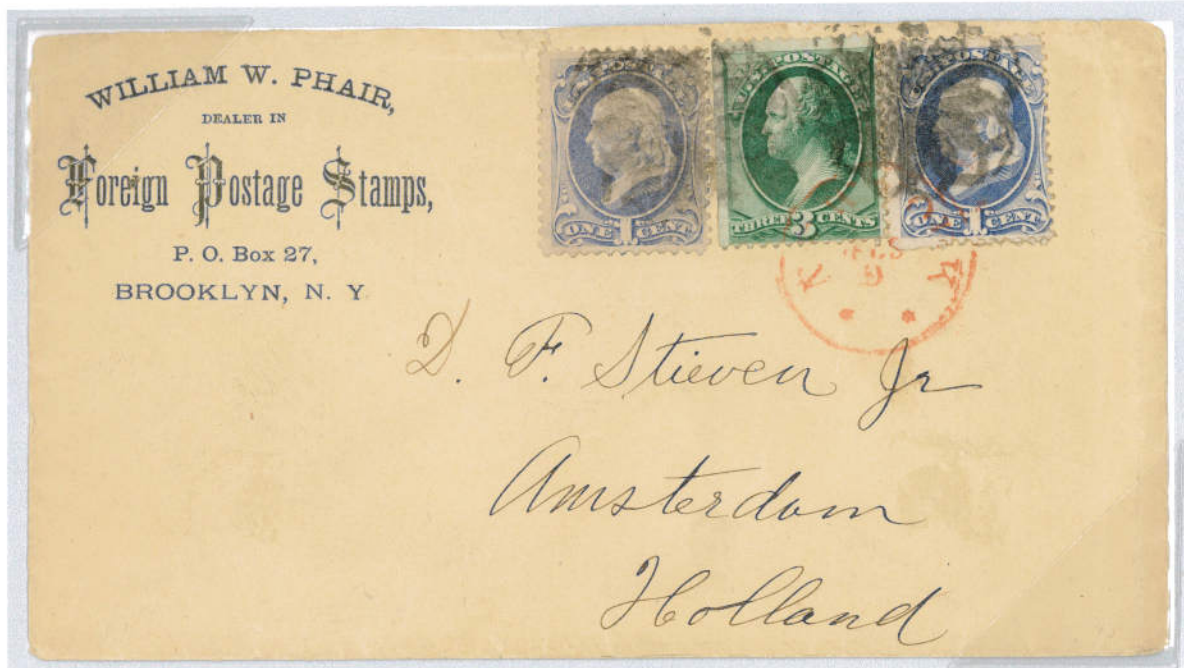 WILLIAM W. PHAIR,
DEALER IN
Foreign Postage Stamps,
P. O. Box 27,
BROOKLYN, N. Y.
U.S. POSTAGE
THREE 3 CENTS
ONE 1 CENT
ONE 1 CENT
D. F. Stieven Jr
Amsterdam
Holland